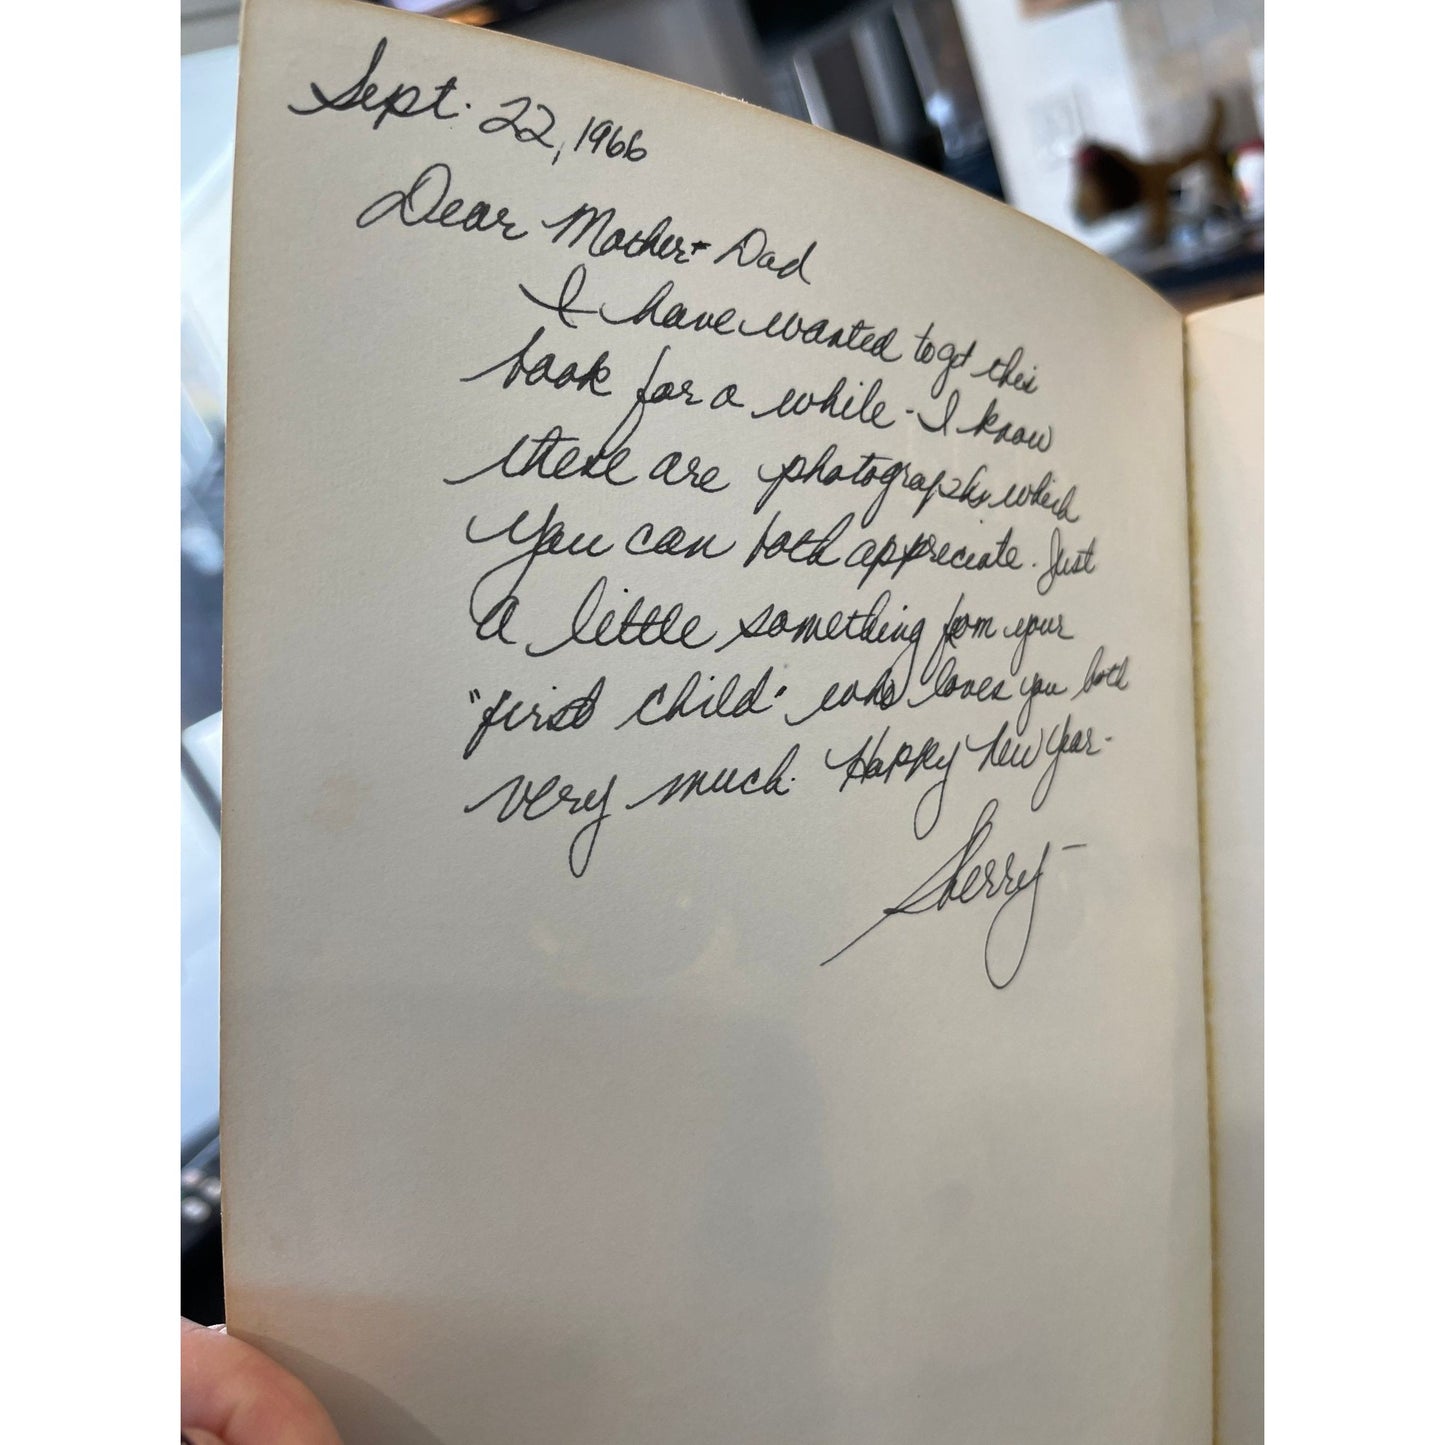 Sept. 22, 1966
Dear Mother + Dad
I have wanted to get this
book for a while - I know
there are photographs which
you can both appreciate. Just
a little something from your
"first child" who loves you both
very much. Happy New Year -
Sherry -